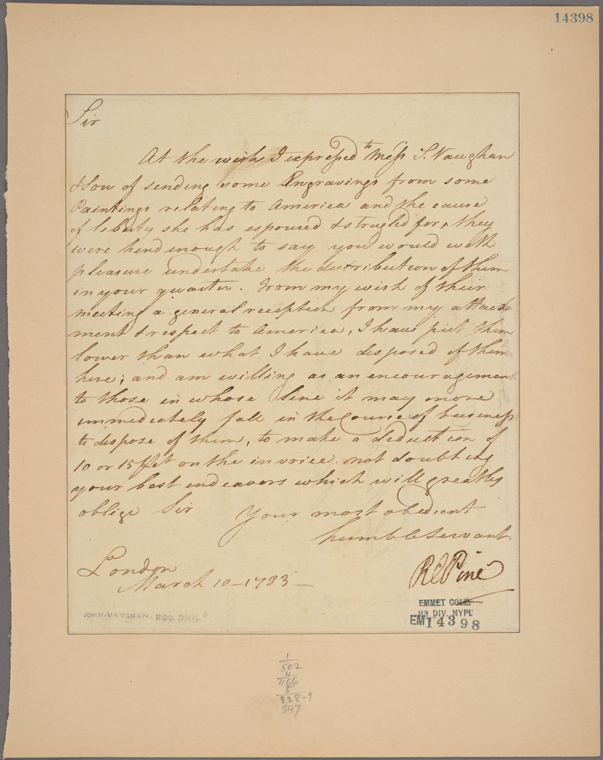 14398
Sir
At the wish I expressed to Mess S. Vaughan
& Son of sending some Engravings from some
Paintings relating to America and the cause
of liberty she has espoused & strugled for, they
were kind enough to say you would with
pleasure undertake the distribution of them
in your quarter. From my wish of their
meeting a general reception from my attach
ment & respect to America, I have put them
lower than what I have disposed of them
here; and am willing as an encouragement
to those in whose line it may more
immediately fall in the Course of business
to dispose of them, to make a deduction of
10 or 15 PCt on the invoice. not doubting
your best endeavors which will greatly
oblige Sir Your most obedient
humble Servant
London
March 10 - 1783 -
R E Pine
JOHN VAUGHAN ESQ. PHILA
EMMET COLL.
MS DIV. NYPL
EM14398
1
502
4
328-9
347